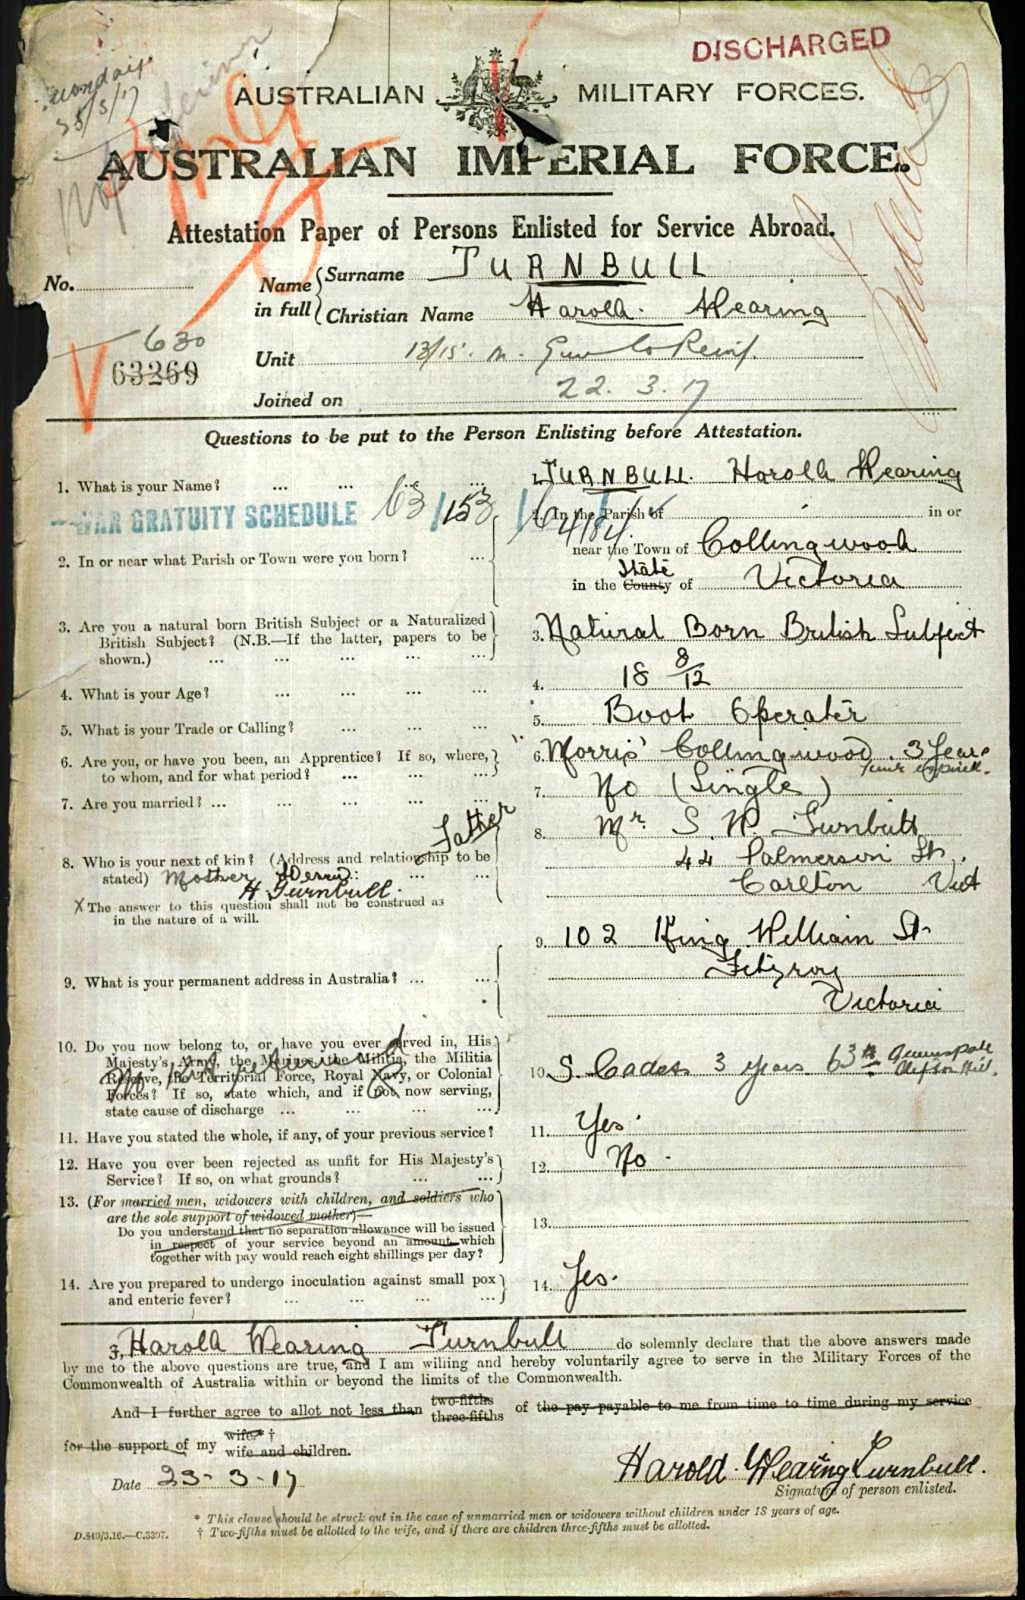 DISCHARGED
AUSTRALIAN MILITARY FORCES.
AUSTRALIAN IMPERIAL FORCE.
Attestation Paper of Persons Enlisted for Service Abroad.
No.
Name in full
Surname TURNBULL
Christian Name Harold. Wearing
630
63269
Unit 13/15. M. Gun Co Reinf.
Joined on 22. 3. 17
Questions to be put to the Person Enlisting before Attestation.
1. What is your Name? ... ... ... ... TURNBULL. Harold Wearing
WAR GRATUITY SCHEDULE 63/153
2. In or near what Parish or Town were you born? ... 2. In the Parish of in or
near the Town of Collingwood
in the County State of Victoria
3. Are you a natural born British Subject or a Naturalized
British Subject? (N.B.—If the latter, papers to be
shown.) ... ... ... ... ... 3. Natural Born British Subject
4. What is your Age? ... ... ... ... 4. 18 8/12
5. What is your Trade or Calling? ... ... ... 5. Boot Operater
6. Are you, or have you been, an Apprentice? If so, where,
to whom, and for what period? ... ... ... 6. Morris' Collingwood. 3 Years
7. Are you married? ... ... ... ... ... 7. No (Single)
8. Who is your next of kin? (Address and relationship to be
stated) Father
Mother
H Turnbull.
8. Mr. S. W. Turnbull
44 Palmerson St.
Carlton Vict
X The answer to this question shall not be construed as
in the nature of a will.
9. What is your permanent address in Australia? ... ... 9. 102 King William St
Fitzroy
Victoria
10. Do you now belong to, or have you ever served in, His
Majesty's Army, the Marines, the Militia, the Militia
Reserve, the Territorial Force, Royal Navy, or Colonial
Forces? If so, state which, and if not now serving,
state cause of discharge ... ... ... ... ...
10. S. Cadets 3 years 63rd Clifton Hill.
11. Have you stated the whole, if any, of your previous service? 11. Yes.
12. Have you ever been rejected as unfit for His Majesty's
Service? If so, on what grounds? ... ... 12. No.
13. (For married men, widowers with children, and soldiers who
are the sole support of widowed mother)—
Do you understand that no separation allowance will be issued
in respect of your service beyond an amount which
together with pay would reach eight shillings per day?
13.
14. Are you prepared to undergo inoculation against small pox
and enteric fever? ... ... ... ... 14. Yes.
I, Harold Wearing Turnbull do solemnly declare that the above answers made
by me to the above questions are true, and I am willing and hereby voluntarily agree to serve in the Military Forces of the
Commonwealth of Australia within or beyond the limits of the Commonwealth.
And I further agree to allot not less than two-fifths three-fifths of the pay payable to me from time to time during my service
for the support of my wife* † wife and children.
Date 23-3-17
Harold Wearing Turnbull.
Signature of person enlisted.
* This clause should be struck out in the case of unmarried men or widowers without children under 18 years of age.
† Two-fifths must be allotted to the wife, and if there are children three-fifths must be allotted.
D.549/3.16.—C.5397.